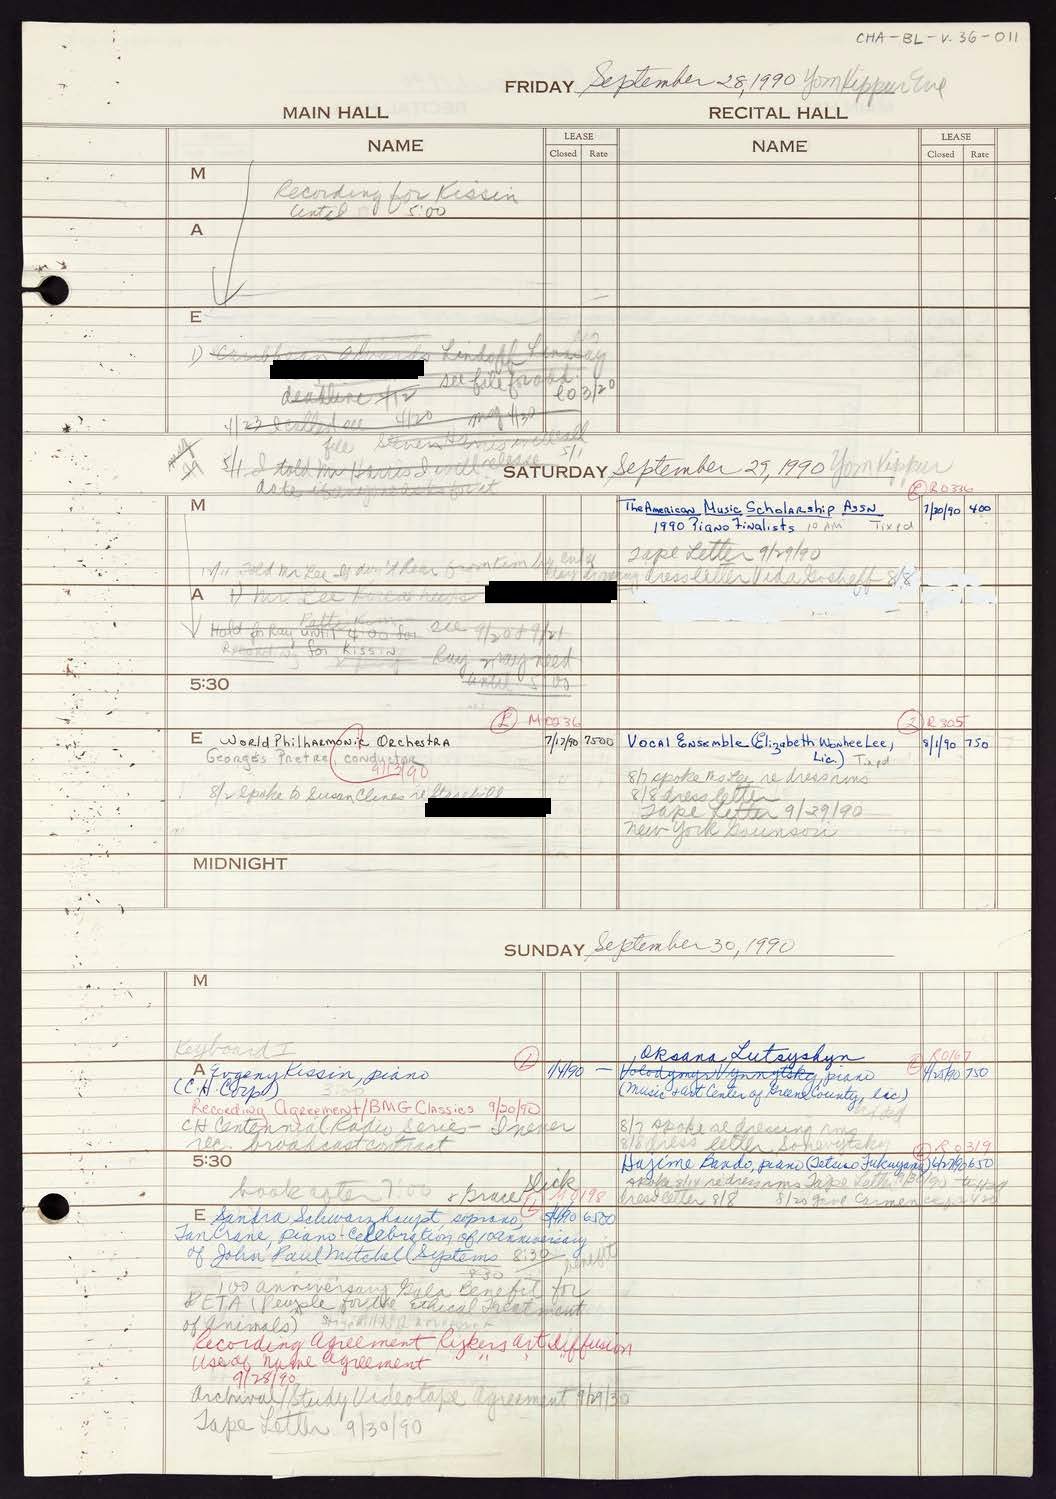 CHA-BL-V.36-011
FRIDAY September 28, 1990 Yom Kippur Eve
MAIN HALL
RECITAL HALL
NAME
LEASE
Closed Rate
NAME
LEASE
Closed Rate
M
Recording for Kissin
Until 5:00
A
E
1) Caribbean Awards
see file for add.
deadline 4/12
to 3/20
4/23 I called see 4/20 msg 4/30
file
5/1
5/1 I told Mr Harris I will release
SATURDAY September 29, 1990 Yom Kippur
M
The American Music Scholarship Assn
1990 Piano Finalists 10 AM Tixpd
R0336
7/20/90 400
Tape Letter 9/29/90
dress letter Vida 8/8
Told Mr Lee If don't hear from him by
A
1) Mr. Lee
Hold for Ray until 4:00 for see 9/20 + 9/21
Recording for Kissin Ray may need
until 5:00
5:30
M0236
E World Philharmonic Orchestra
7/17/90 7500
Georges Pretre, conductor
9/13/90
8/2 spoke to Susan Clines re Stagebill
2 R305
Vocal Ensemble (Elizabeth Wonhee Lee,
Lic.) Tixpd
8/1/90 750
8/7 spoke Ms Lee re dressrms
8/8 dress letter
Tape Letter 9/29/90
New York Counson
MIDNIGHT
SUNDAY September 30, 1990
M
Keyboard I
A Evgeny Kissin, piano
(C.H. Corp)
1/4/90 —
Recording Agreement/BMG Classics 9/20/90
CH Centennial Radio Series - I never
rec. broadcast contract
Oksana Lutsyshyn
Volodymyr Vynnytsky, piano
(Music + Art Center of Greene County, Lic)
R0167
4/25/90 750
8/7 spoke re dressing rms
8/8 dress letter, Sonevytsky
5:30
book after 7:00
+ Grace Slick
Hajime Bando, piano (Tetsuo Fukuyama)
R0319
6/27/90 650
spoke 8/14 re dressrms Tape Letter 9/30/90
dress letter 8/8 8/20 gave Carmen
M0198
E Sandra Schwarzhaupt, soprano,
6500
Ian Crane, piano - Celebration of 10 anniversary
of John Paul Mitchell Systems 8:30 benefit
8:30
100 anniversary Gala Benefit for
PETA (People for the Ethical Treatment
of Animals)
Recording Agreement Rykers Art Diffusion
Use of Name Agreement " " "
9/28/90
Archival/Study Videotape Agreement 9/29/30
Tape Letter 9/30/90